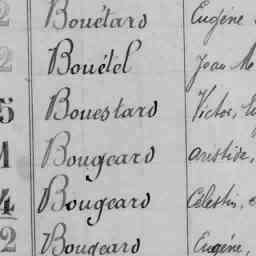 2 Bouëtard Eugène
2 Bouétel Jean M
5 Bouestard Victor,
1 Bougeard Aristide,
4 Bougeard Célestin,
2 Bougeard Eugène,